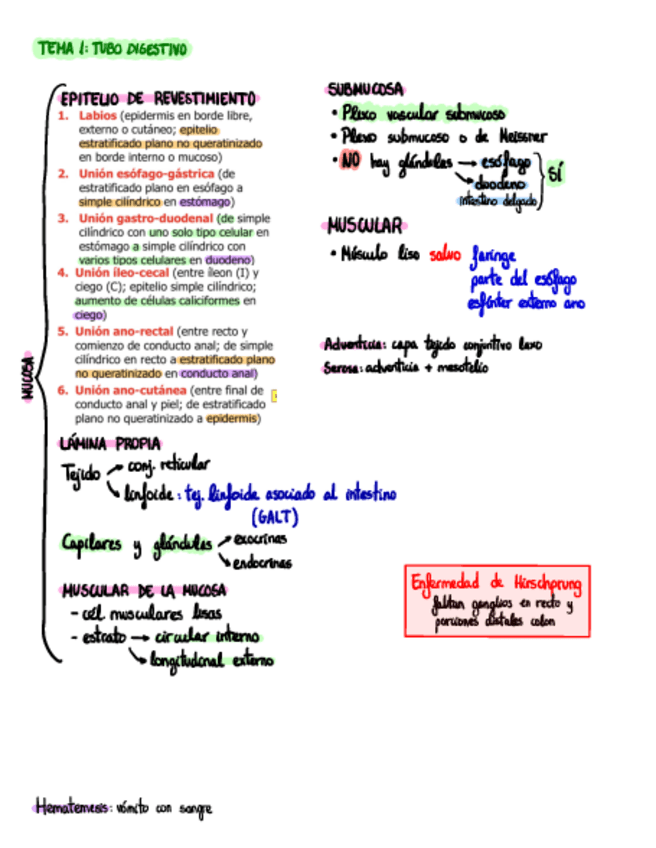 TEMA 1: TUBO DIGESTIVO
MUCOSA
EPITELIO DE REVESTIMIENTO
1. Labios (epidermis en borde libre,
externo o cutáneo; epitelio
estratificado plano no queratinizado
en borde interno o mucoso)
2. Unión esófago-gástrica (de
estratificado plano en esófago a
simple cilíndrico en estómago)
3. Unión gastro-duodenal (de simple
cilíndrico con uno solo tipo celular en
estómago a simple cilíndrico con
varios tipos celulares en duodeno)
4. Unión íleo-cecal (entre íleon (I) y
ciego (C); epitelio simple cilíndrico;
aumento de células caliciformes en
ciego)
5. Unión ano-rectal (entre recto y
comienzo de conducto anal; de simple
cilíndrico en recto a estratificado plano
no queratinizado en conducto anal)
6. Unión ano-cutánea (entre final de
conducto anal y piel; de estratificado
plano no queratinizado a epidermis)
LÁMINA PROPIA
Tejido → conj. reticular
→ linfoide: tej. linfoide asociado al intestino
(GALT)
Capilares y glándulas → exocrinas
→ endocrinas
MUSCULAR DE LA MUCOSA
- cél. musculares lisas
- estrato → circular interno
→ longitudonal externo
SUBMUCOSA
• Plexo vascular submucoso
• Plexo submucoso o de Meissner
• NO hay glándulas → esófago
→ duodeno
intestino delgado
SÍ
MUSCULAR
• Músculo liso salvo faringe
parte del esófago
esfínter externo ano
Adventicia: capa tejido conjuntivo laxo
Serosa: adventicia + mesotelio
Enfermedad de Hirschprung
faltan ganglios en recto y
porciones distales colon
Hematemesis: vómito con sangre